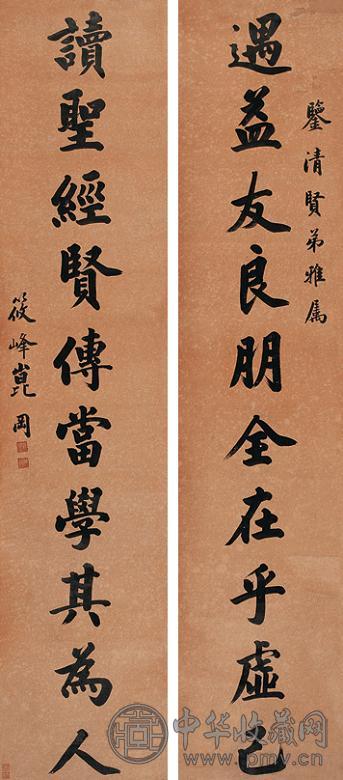 鑒清賢弟雅属
遇益友良朋全在乎虛己
讀聖經賢傳當學其為人
筱峰崑岡
中华收藏网
pmyc.com.cn